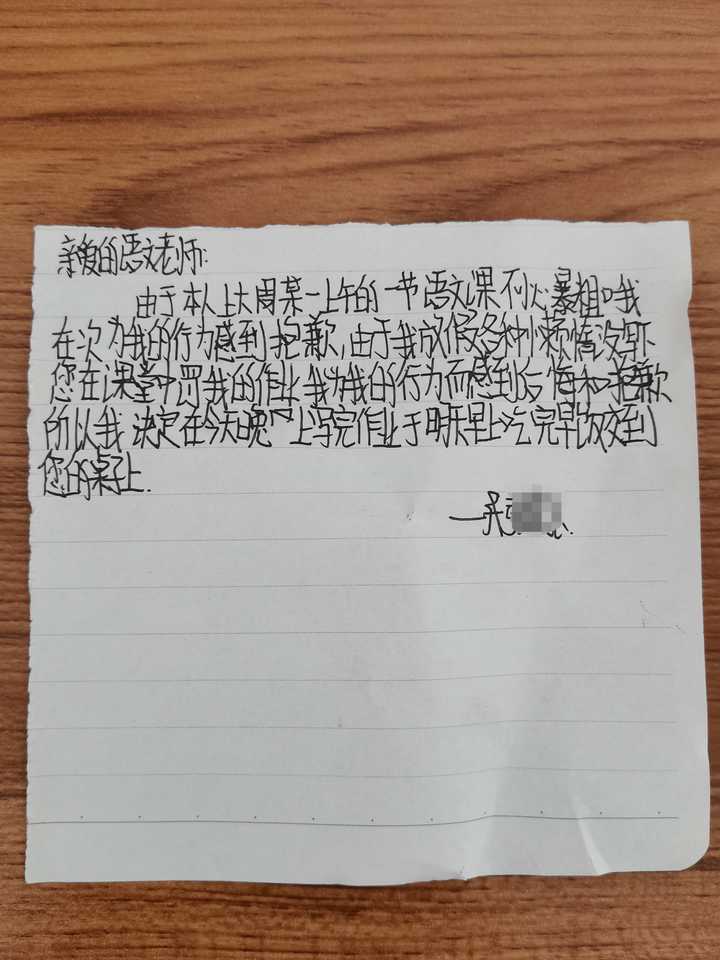 亲爱的语文老师:
由于本人上大周某一上午的一节语文课不小心暴粗口哦
在次为我的行为感到抱歉,由于我放假各种小懒惰没写下
您在课堂中罚我的作业我为我的行为而感到后悔和抱歉
所以我决定在今天晚上写完作业于明天早上吃完早饭交到
您的桌子上.